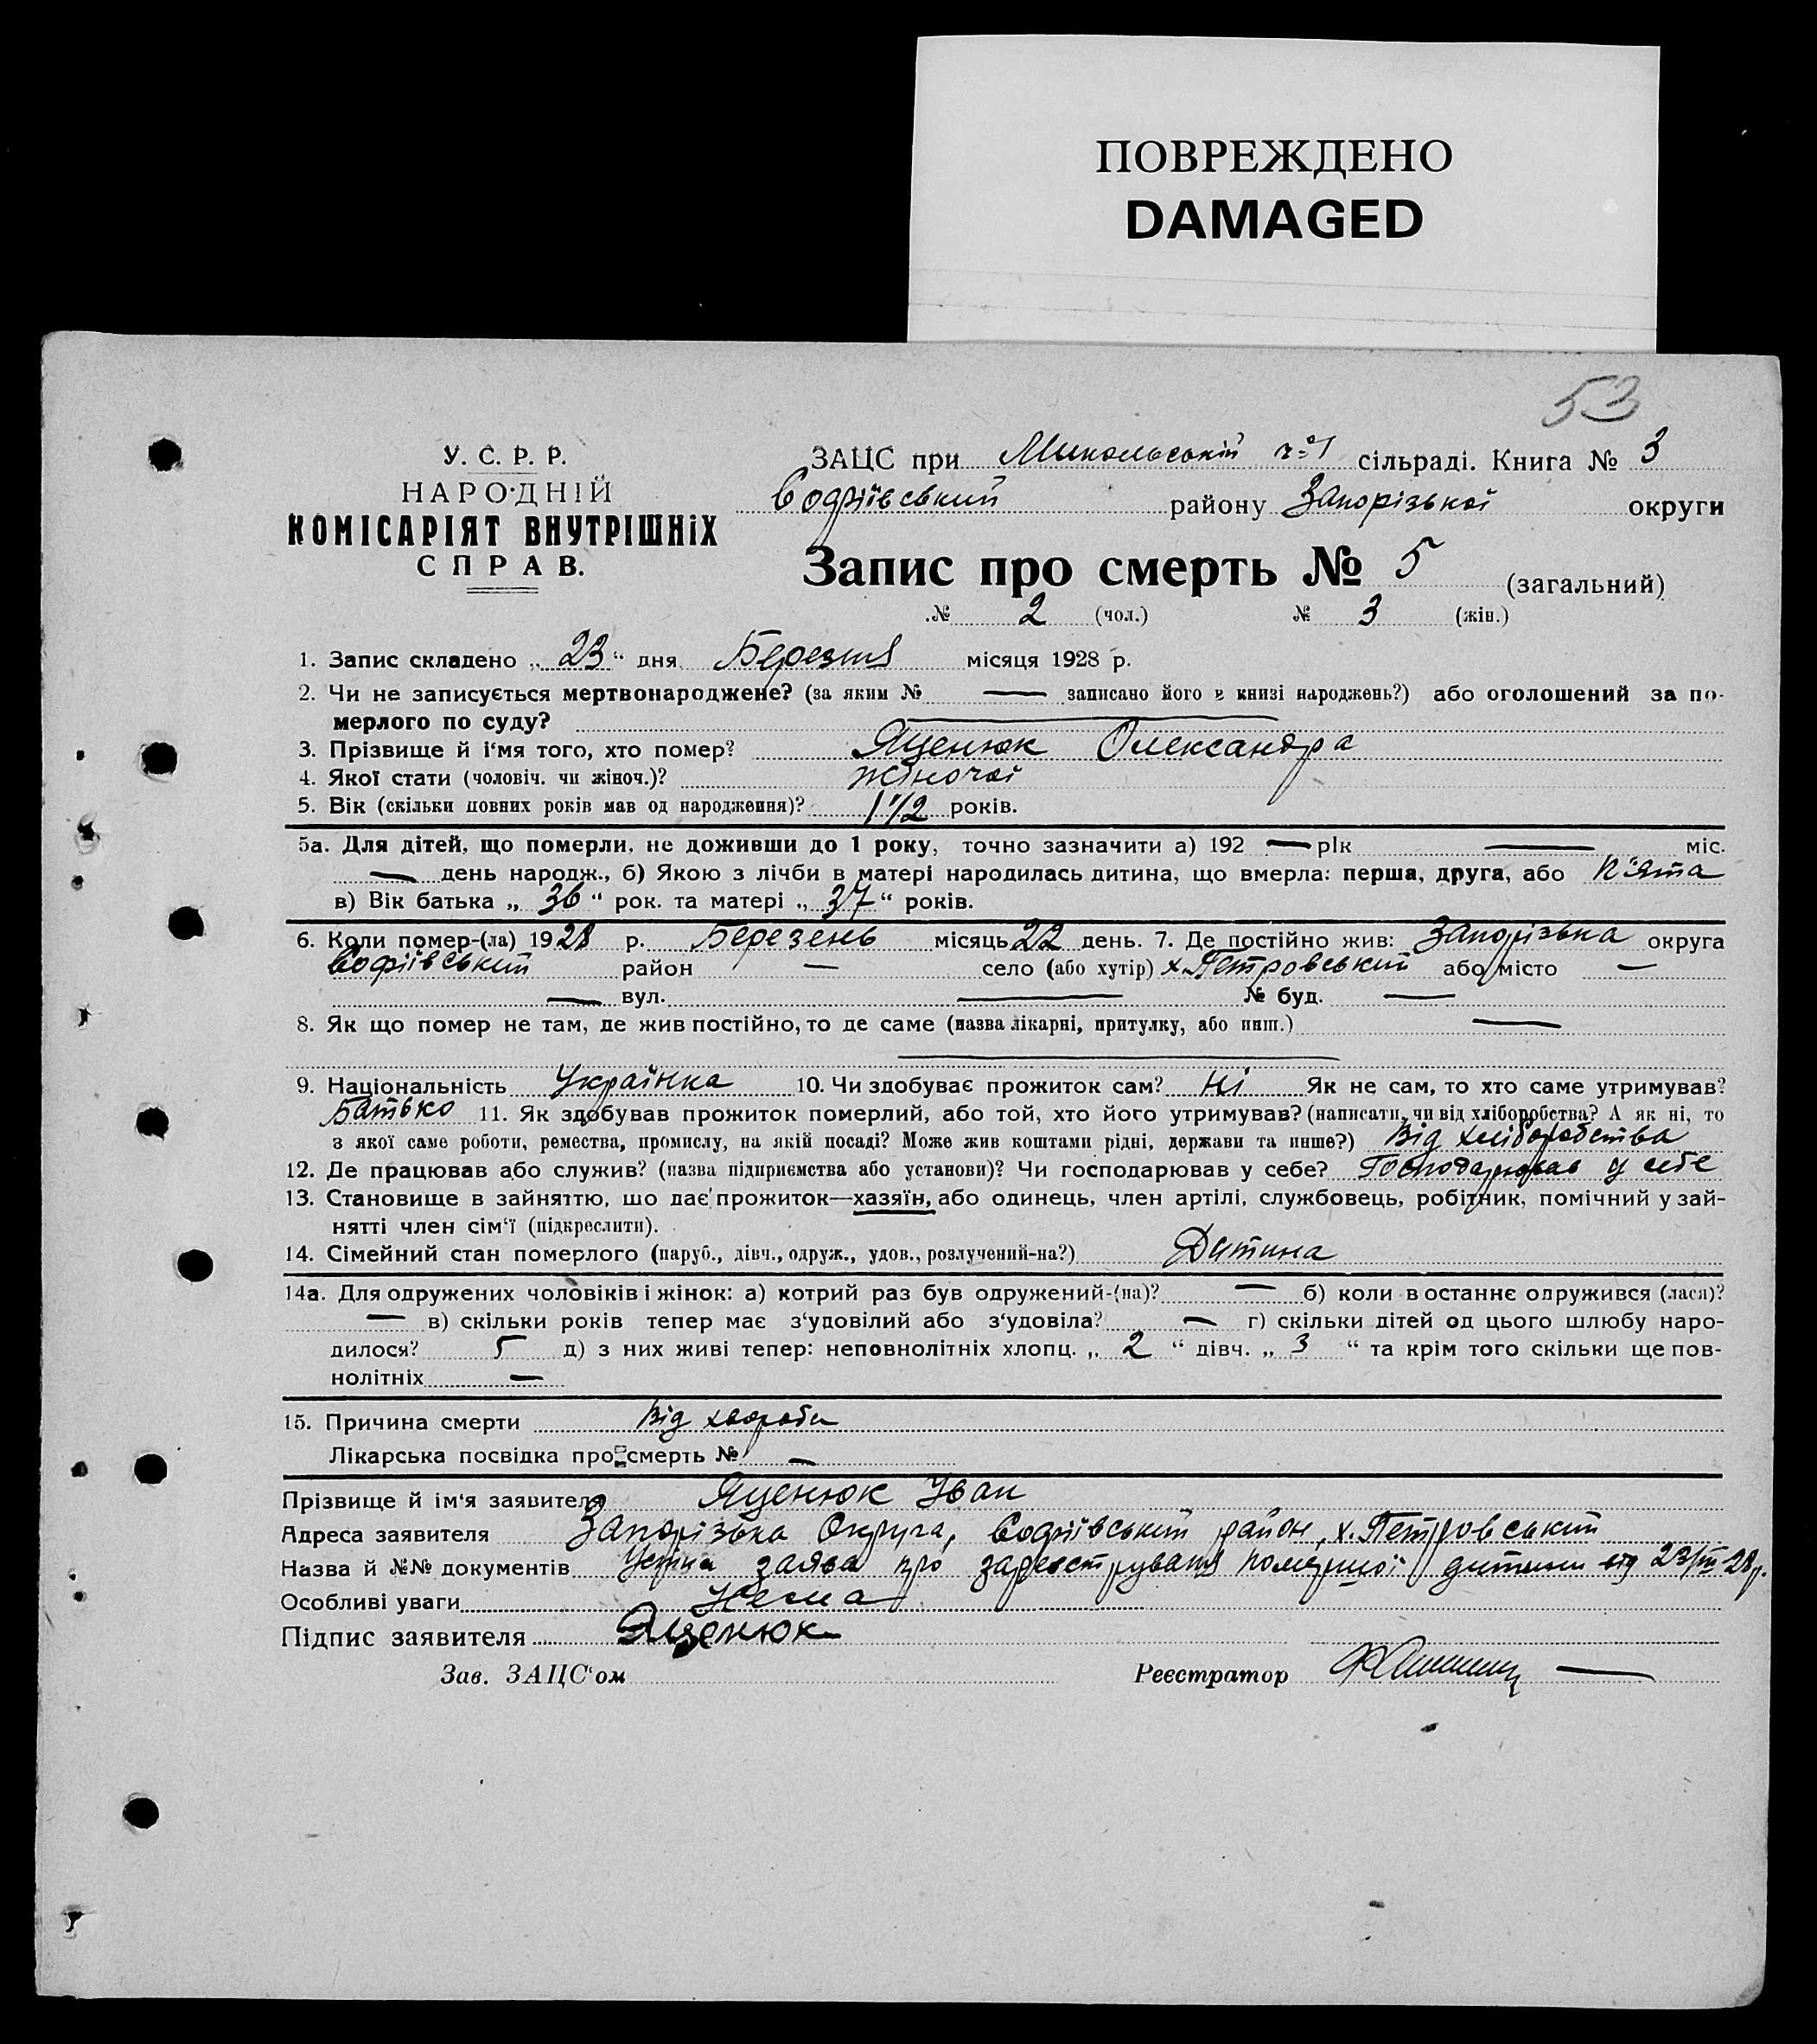 ПОВРЕЖДЕНО
DAMAGED
53
У. С. Р. Р.
НАРОДНІЙ
КОМІСАРІЯТ ВНУТРІШНІХ
СПРАВ.
ЗАЦС при Микольській №1 сільраді. Книга № 3
Софіївський району Запорізької округи
Запис про смерть № 5 (загальний)
№ 2 (чол.) № 3 (жін.)
1. Запис складено „ 23 “ дня Березня місяця 1928 р.
2. Чи не записується мертвонароджене? (за яким № — записано його в книзі народжень?) або оголошений за по-
мерлого по суду? —
3. Прізвище й і‘мя того, хто помер? Яценюк Олександра
4. Якої стати (чоловіч. чи жіноч.)? жіночої
5. Вік (скільки повних років мав од народження)? 1 1/2 років.
5а. Для дітей, що померли, не доживши до 1 року, точно зазначити а) 192 — рік — міс.
— день народж., б) Якою з лічби в матері народилась дитина, що вмерла: перша, друга, або п'ята
в) Вік батька „ 36 “ рок. та матері „ 37 “ років.
6. Коли помер-(ла) 1928 р. Березень місяць 22 день. 7. Де постійно жив: Запорізька округа
Софіївський район — село (або хутір) х. Петровський або місто —
— вул. — № буд. —
8. Як що помер не там, де жив постійно, то де саме (назва лікарні, притулку, або инш.) —
—
9. Національність Українка 10. Чи здобуває прожиток сам? Ні Як не сам, то хто саме утримував?
Батько 11. Як здобував прожиток померлий, або той, хто його утримував? (написати, чи від хліборобства? А як ні, то
з якої саме роботи, ремества, промислу, на якій посаді? Може жив коштами рідні, держави та инше?) Від хліборобства
12. Де працював або служив? (назва підприємства або установи)? Чи господарював у себе? Господарював у себе
13. Становище в зайняттю, що дає прожиток—хазяїн, або одинець, член артілі, службовець, робітник, помічний у зай-
нятті член сім‘ї (підкреслити).
14. Сімейний стан померлого (паруб., дівч., одруж., удов., розлучений-на?) Дитина
14а. Для одружених чоловіків і жінок: а) котрий раз був одружений-(на)? — б) коли в останнє одружився (лася)?
— в) скільки років тепер має з‘удовілий або з‘удовіла? — г) скільки дітей од цього шлюбу наро-
дилося? 5 д) з них живі тепер: неповнолітніх хлопц. „ 2 “ дівч. „ 3 “ та крім того скільки ще пов-
нолітніх —
15. Причина смерти Від хвороби
Лікарська посвідка про смерть № —
Прізвище й ім‘я заявителя Яценюк Іван
Адреса заявителя Запорізька Округа, Софіївський район, х. Петровський
Назва й №№ документів Усна заява про зареєструваня помершої дитини від 23/III-28р.
Особливі уваги Нема
Підпис заявителя Яценюк
Зав. ЗАЦС‘ом
Реєстратор